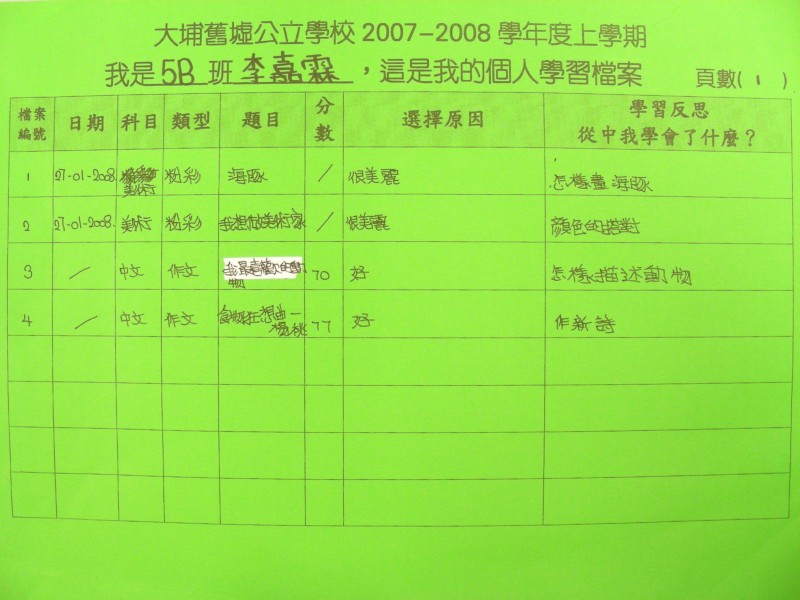 大埔舊墟公立學校 2007-2008 學年度上學期
我是 5B 班 李嘉霖 ，這是我的個人學習檔案 頁數( 1 )
檔案編號 日期 科目 類型 題目 分數 選擇原因 學習反思 從中我學會了什麼？
1 27-01-2008. 美術 粉彩 海豚 / 很美麗 怎樣畫海豚
2 27-01-2008. 美術 粉彩 我想做美術家 / 很美麗 顏色的搭對
3 / 中文 作文 我最喜歡的動物 70 好 怎樣描述動物
4 / 中文 作文 食物狂想曲—楊桃 77 好 作新詩